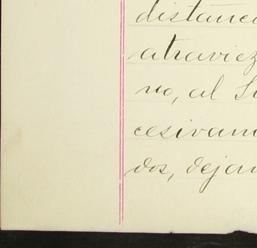 distanci
atraviez
no, al Su
cesivam
dos, dejan